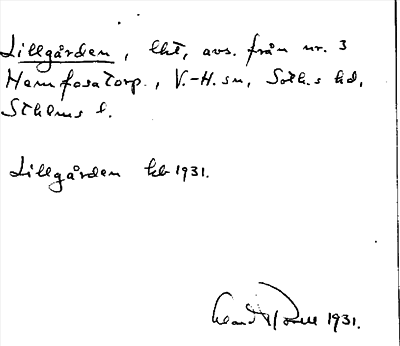 Lillgården, lht, avs. från nr. 3
Hamfosatorp., V.-H. sn, Soth.s hd,
Sthlms l.
Lillgården kb 1931.
1931.